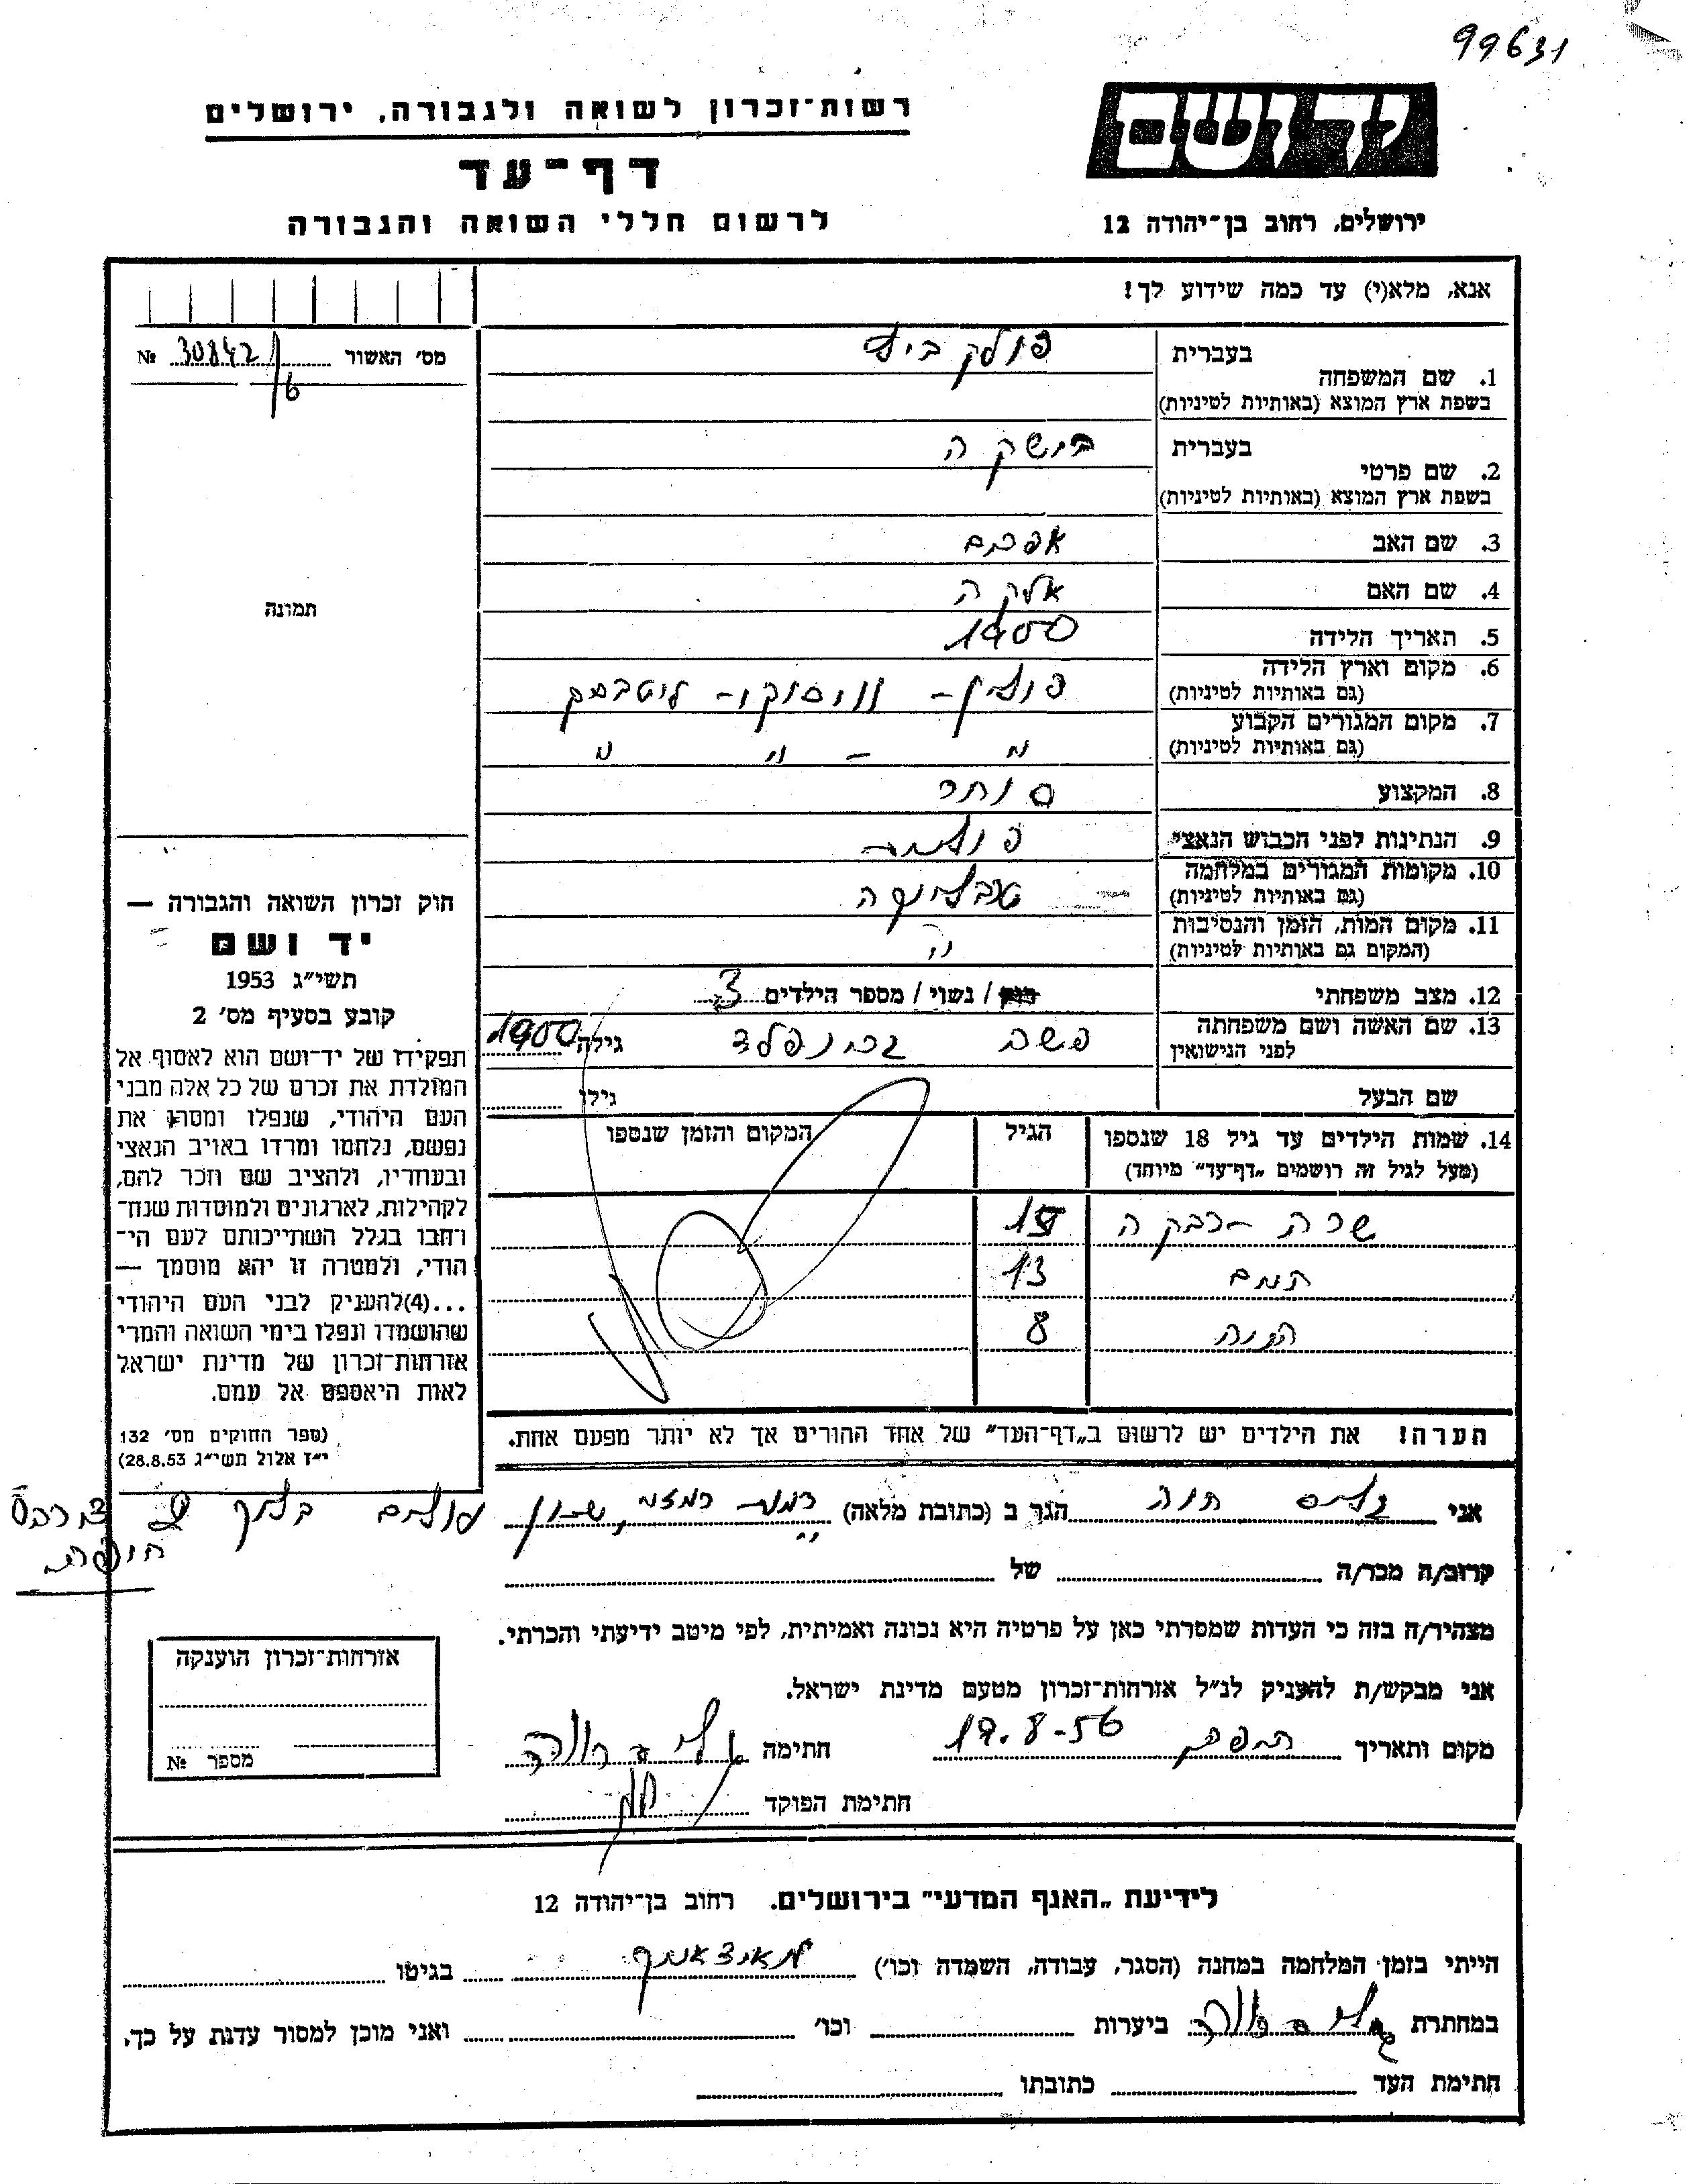 99631
יד ושם
רשות־זכרון לשואה ולגבורה, ירושלים
דף־עד
לרשום חללי השואה והגבורה
ירושלים, רחוב בן־יהודה 12
אנא, מלא(י) עד כמה שידוע לך!
מס׳ האשור 30842/6 №
תמונה
בעברית
1. שם המשפחה
בשפת ארץ המוצא (באותיות לטיניות)
בעברית
2. שם פרטי
בשפת ארץ המוצא (באותיות לטיניות)
3. שם האב אפרים
4. שם האם אלקה
5. תאריך הלידה 1900
6. מקום וארץ הלידה פולין - וויסוקו - ליטבסק
(גם באותיות לטיניות)
7. מקום המגורים הקבוע " - " "
(גם באותיות לטיניות)
8. המקצוע סוחר
9. הנתינות לפני הכבוש הנאצי פולנית
10. מקומות המגורים במלחמה טרבלינקה
(גם באותיות לטיניות)
11. מקום המות, הזמן והנסיבות "
(המקום גם באותיות לטיניות)
12. מצב משפחתי רווק / נשוי / מספר הילדים 3
13. שם האשה ושם משפחתה גילה 1900
לפני הנישואין
שם הבעל גילו
14. שמות הילדים עד גיל 18 שנספו הגיל המקום והזמן שנספו
(מעל לגיל זה רושמים „דף־עד” מיוחד)
שרה - רבקה 15
נחום 13
חנה 8
הערה! את הילדים יש לרשום ב„דף־העד” של אחד ההורים אך לא יותר מפעם אחת.
חוק זכרון השואה והגבורה —
יד ושם
תשי״ג 1953
קובע בסעיף מס׳ 2
תפקידו של יד־ושם הוא לאסוף אל
המולדת את זכרם של כל אלה מבני
העם היהודי, שנפלו ומסרו את
נפשם, נלחמו ומרדו באויב הנאצי
ובעוזריו, ולהציב שם וזכר להם,
לקהילות, לארגונים ולמוסדות שנח־
רחבו בגלל השתייכותם לעם הי־
הודי, ולמטרה זו יהא מוסמך —
...(4)להעניק לבני העם היהודי
שהושמדו ונפלו בימי השואה והמרי
אזרחות־זכרון של מדינת ישראל
לאות היאספם אל עמם.
(ספר החוקים מס׳ 132
י״ז אלול תשי״ג 28.8.53)
אני חוה הגר ב (כתובת מלאה) רמת רמז, שכון פועלים בלוק
חיפה
קרוב/ה מכר/ה של
מצהיר/ה בזה כי העדות שמסרתי כאן על פרטיה היא נכונה ואמיתית, לפי מיטב ידיעתי והכרתי.
אני מבקש/ת להעניק לנ״ל אזרחות־זכרון מטעם מדינת ישראל.
מקום ותאריך 17.8-56 חתימה
חתימת הפוקד
אזרחות־זכרון הוענקה
מספר №
לידיעת „האגף המדעי” בירושלים. רחוב בן־יהודה 12
הייתי בזמן המלחמה במחנה (הסגר, עבודה, השמדה וכו׳) בגיטו
במחתרת ביערות וכו׳ ואני מוכן למסור עדות על כך.
חתימת העד כתובתו